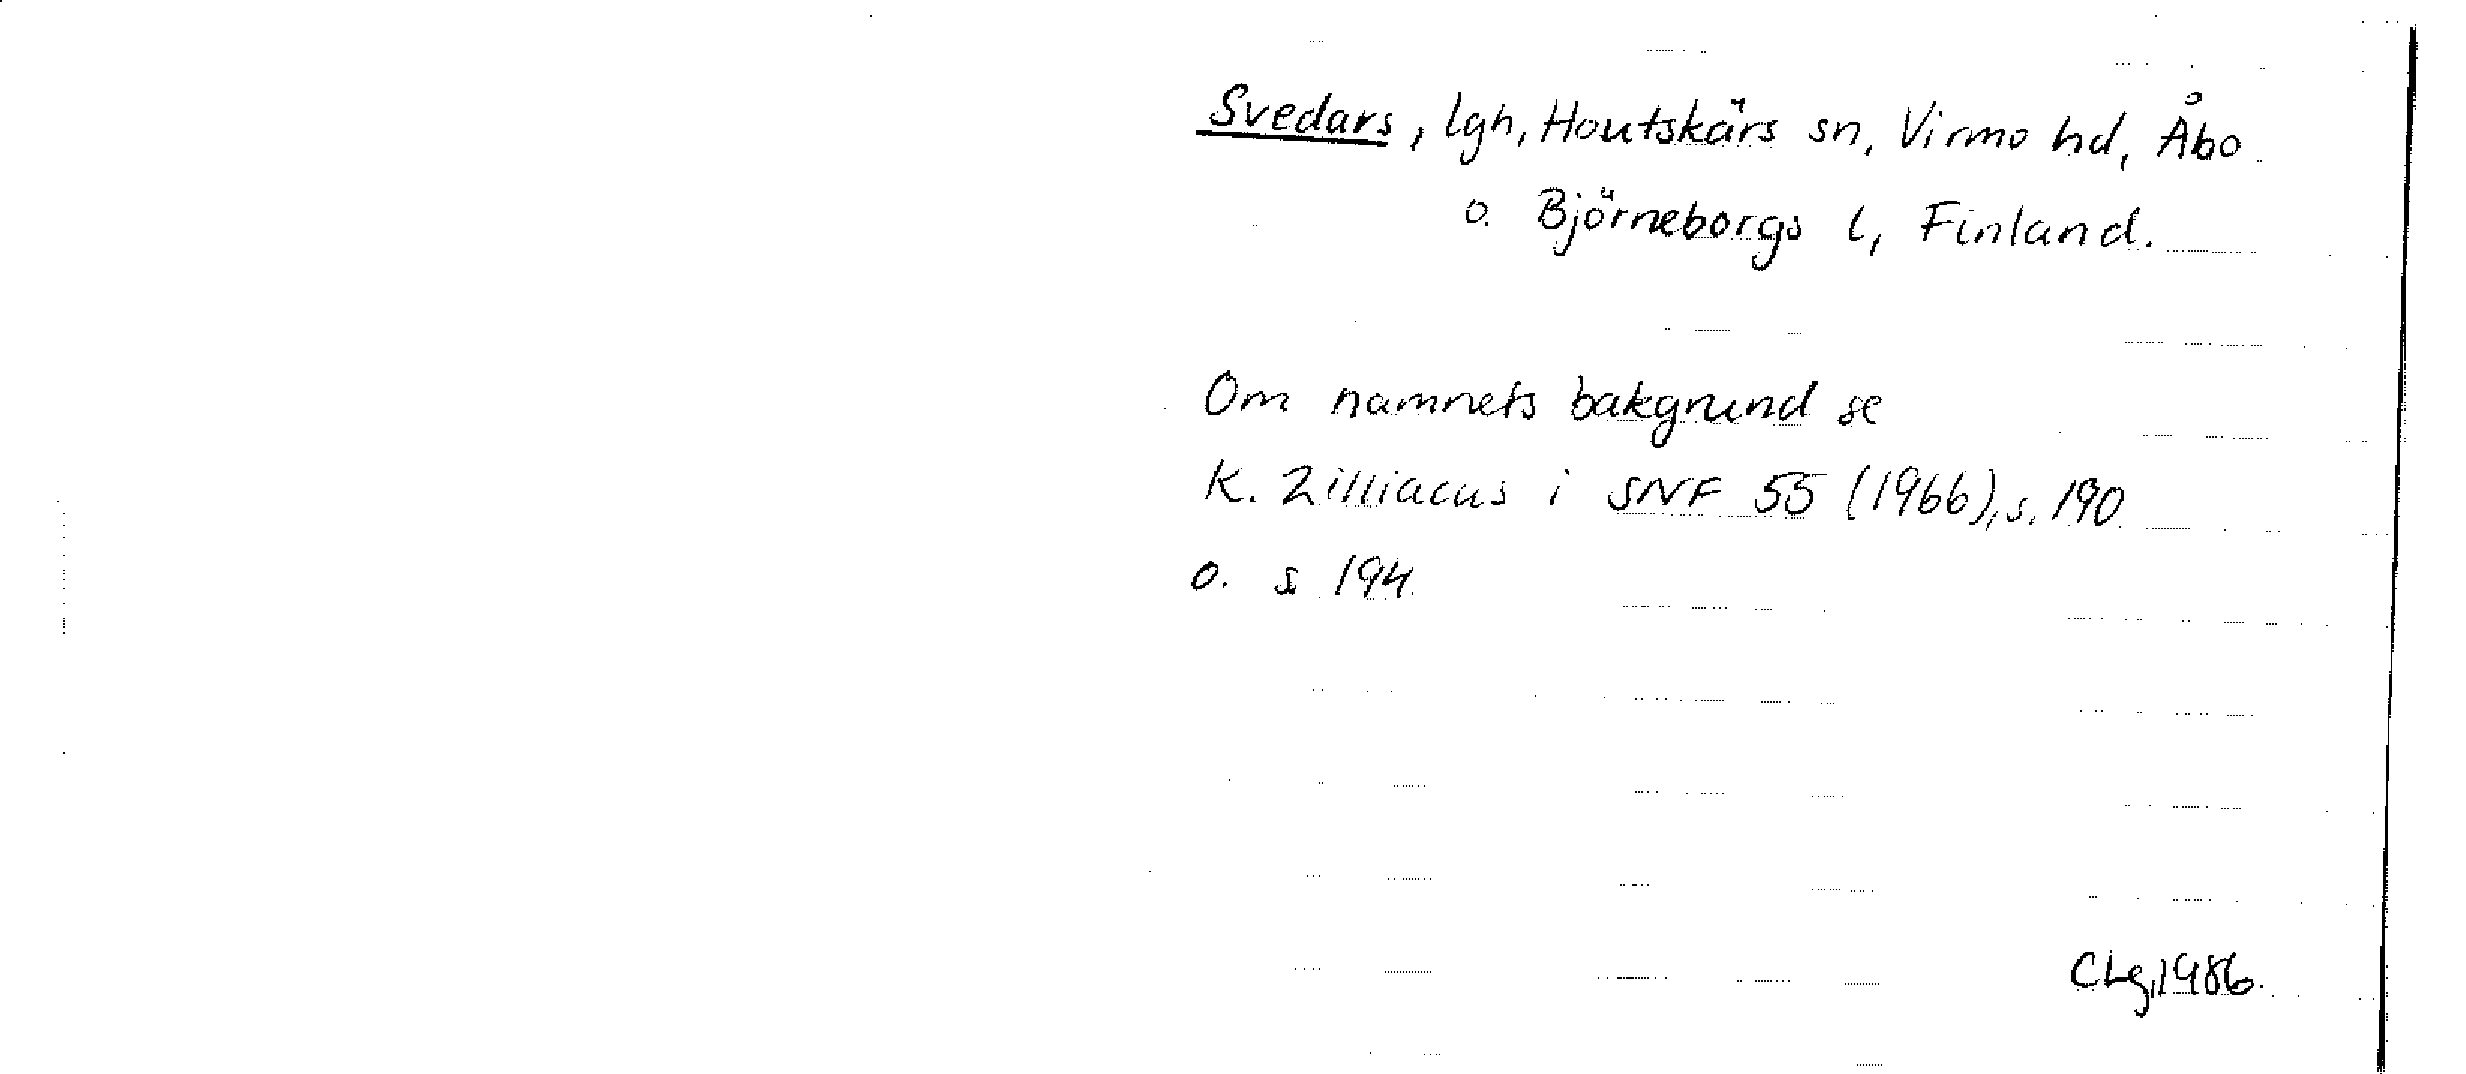 Svedars, lgh, Houtskärs sn, Virmo hd, Åbo
o. Björneborgs l, Finland.
Om namnets bakgrund se
K. Zilliacus i SNF 55 (1966), s. 190
o. s 194
CLg, 1986.